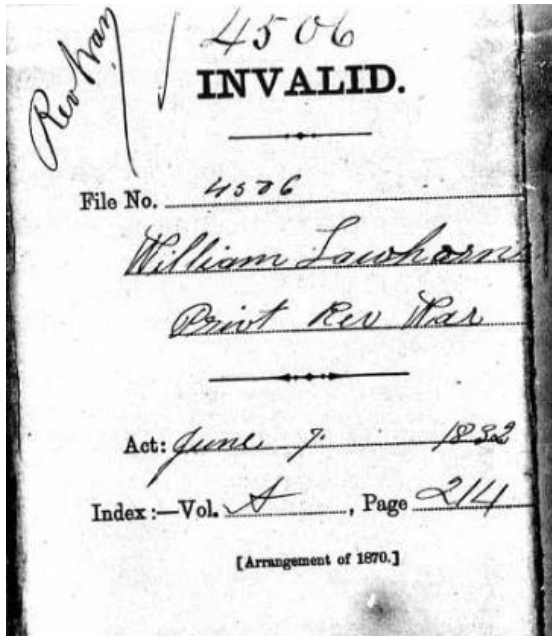 Rev War
4506
INVALID.
File No. 4506
William Lawhorn
Privt Rev War
Act: June 7. 1832
Index:—Vol. A, Page 214
[Arrangement of 1870.]